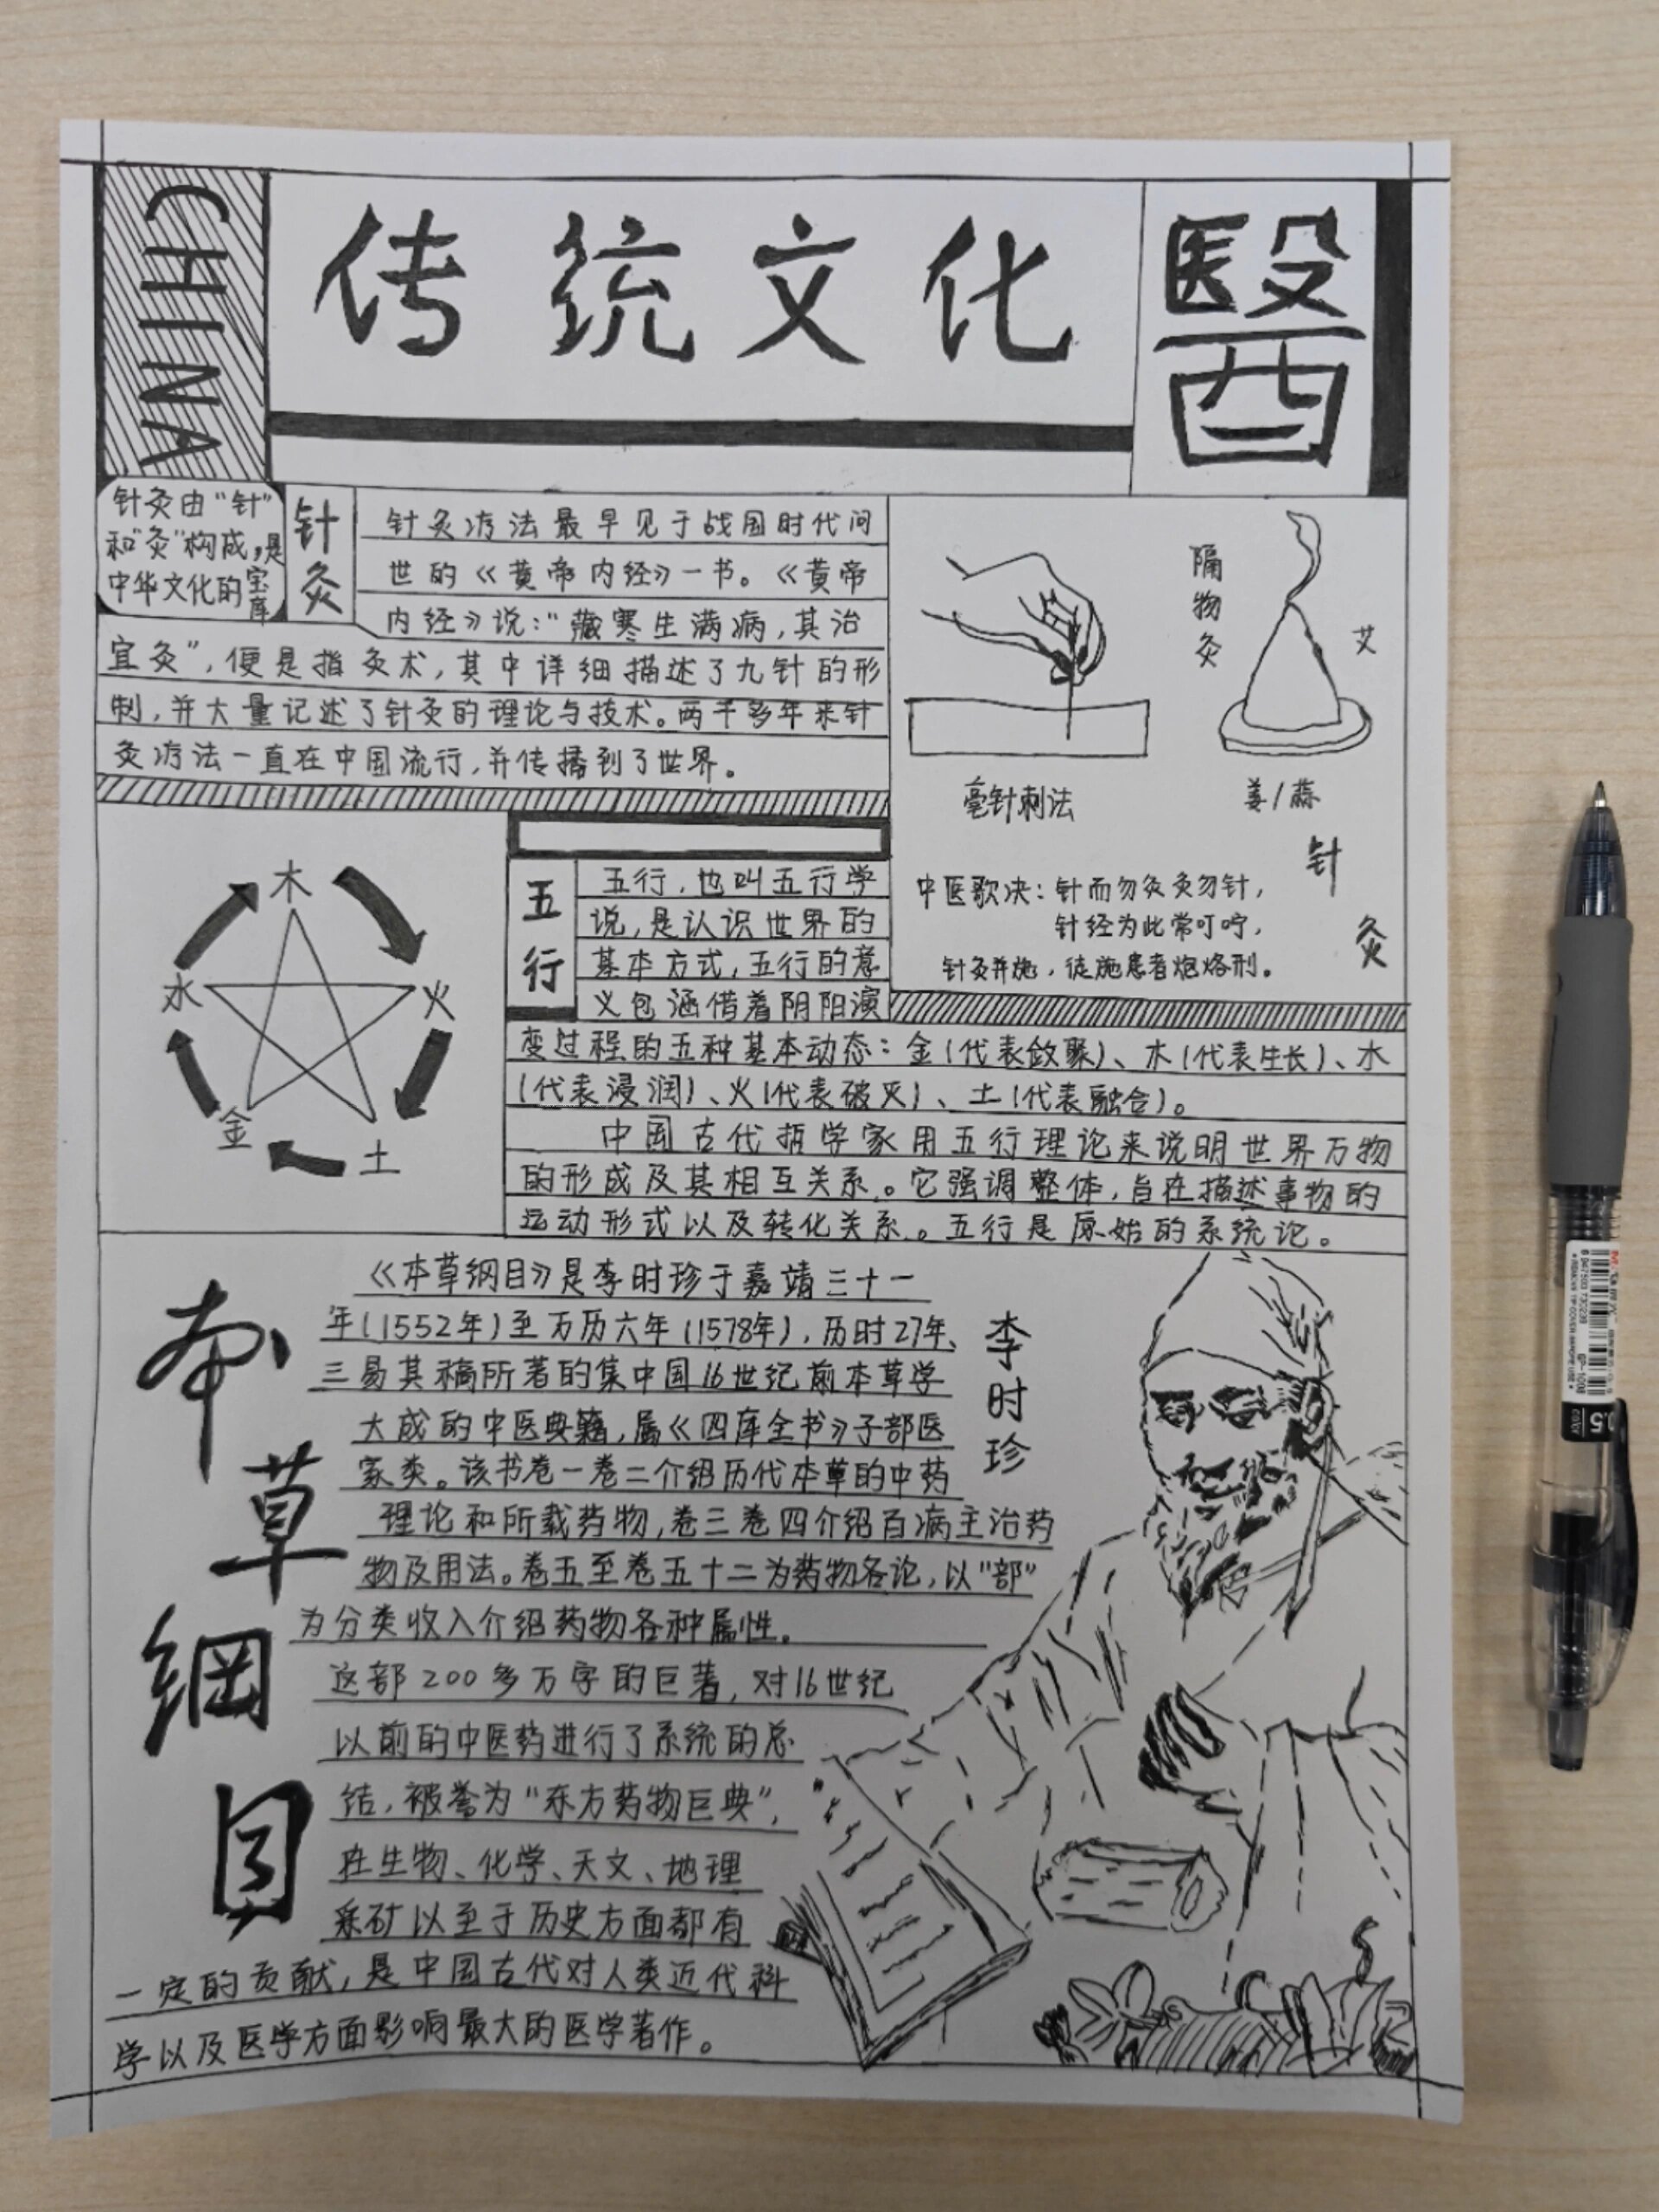 CHINA
传统文化
醫
针灸由“针”
和“灸”构成,是
中华文化的宝库
针灸
针灸疗法最早见于战国时代问
世的《黄帝内经》一书。《黄帝
内经》说:“藏寒生满病,其治
宜灸”,便是指灸术,其中详细描述了九针的形
制,并大量记述了针灸的理论与技术。两千多年来针
灸疗法一直在中国流行,并传播到了世界。
隔物灸
艾
毫针刺法
姜/蒜
针灸
中医歌决:针而勿灸灸勿针,
针经为此常叮咛,
针灸并施,徒施患者炮烙刑。
木
火
土
金
水
五行
五行,也叫五行学
说,是认识世界的
基本方式,五行的意
义包涵借着阴阳演
变过程的五种基本动态:金(代表敛聚)、木(代表生长)、水
(代表浸润)、火(代表破灭)、土(代表融合)。
中国古代哲学家用五行理论来说明世界万物
的形成及其相互关系。它强调整体,旨在描述事物的
运动形式以及转化关系。五行是原始的系统论。
本草綱目
《本草纲目》是李时珍于嘉靖三十一
年(1552年)至万历六年(1578年),历时27年、
三易其稿所著的集中国16世纪前本草学
大成的中医典籍,属《四库全书》子部医
家类。该书卷一卷二介绍历代本草的中药
理论和所载药物,卷三卷四介绍百病主治药
物及用法。卷五至卷五十二为药物各论,以“部”
为分类收入介绍药物各种属性。
这部200多万字的巨著,对16世纪
以前的中医药进行了系统的总
结,被誉为“东方药物巨典”,
在生物、化学、天文、地理
采矿以至于历史方面都有
一定的贡献,是中国古代对人类近代科
学以及医学方面影响最大的医学著作。
李时珍
0.5